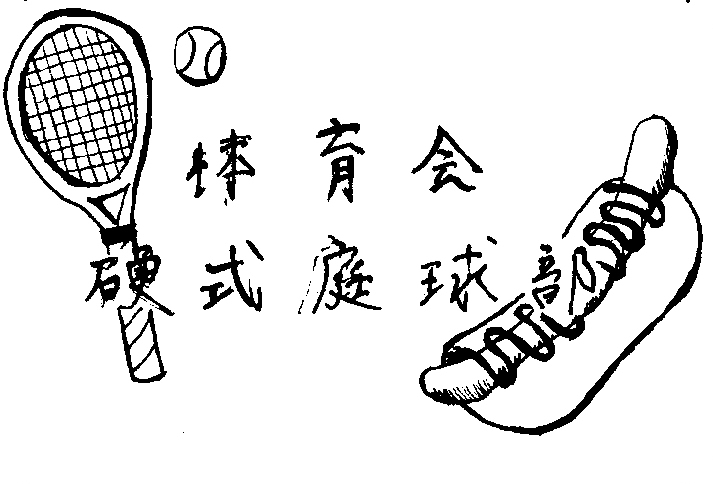 体育会
硬式庭球部